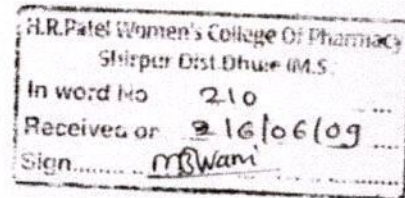 H.R.Patel Women's College Of Pharmacy
Shirpur Dist.Dhule (M.S.
In word No 210
Received on 16/06/09
Sign........ MBWani